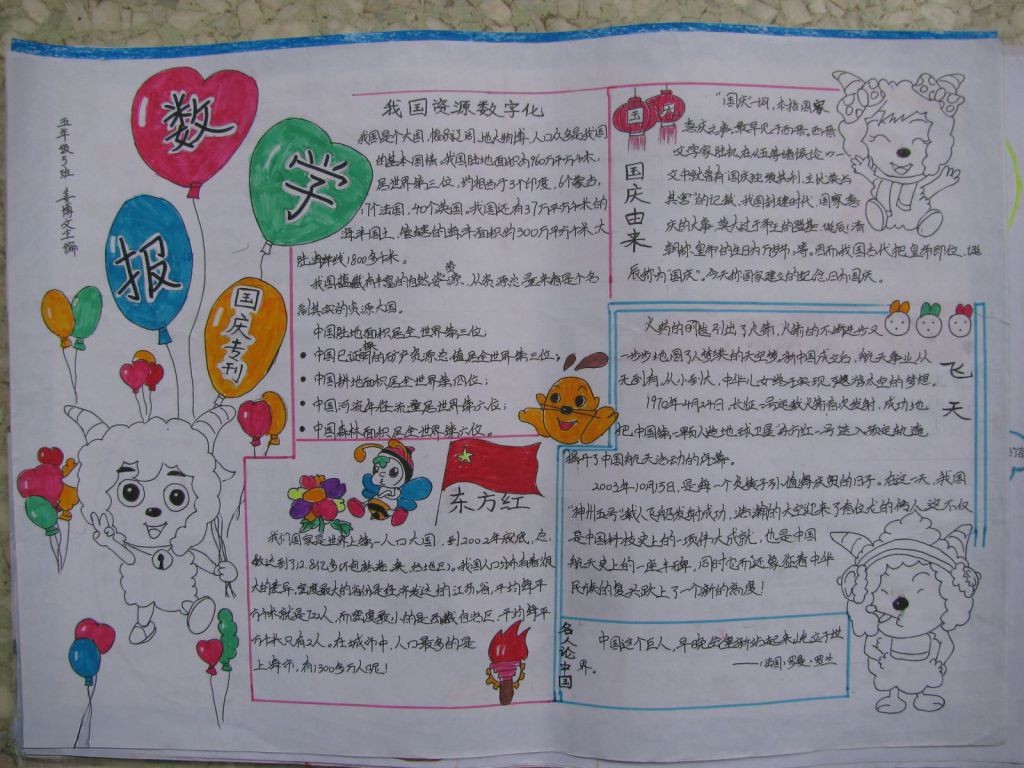 数
学
报
国庆专刊
五年级5班
我国资源数字化
我国是个大国，幅员辽阔，地大物博，人口众多是我国
的基本国情。我国陆地面积为960万平方千米，
居世界第三位，约相当于3个印度，6个蒙古，
17个法国，40个英国。我国还有37万平方千米的
海洋国土，管辖的海洋面积约300万平方千米，大
陆海岸线1800多千米。
我国蕴藏有丰富的自然资源，从资源总量来看是个名
副其实的资源大国。
中国陆地面积居全世界第三位，
中国已证明的矿产资源总值居全世界第三位。
中国耕地面积居全世界第四位；
中国河流年径流量居世界第六位；
中国森林面积居全世界第六位。
东方红
我们国家是世界上第一人口大国，到2002年税底，总
数达到了12.8亿多（包括港、澳、台地区）。我国人口分布有着很
大的差异，密度最大的省份是经济发达的江苏省，平均每平
方千米就是722人，而密度最小的是西藏自治区，平均每平
方千米只有2人。在城市中，人口最多的是
上海市，有1300多万人呢！
国庆
国庆由来
“国庆”一词，本指国家
喜庆之事，最早见于西晋。西晋
文学家陆机在《五等诸侯论》一
文中就曾有“国庆独飨其利，主忧莫与
其害”的记载，我国封建时代、国家喜
庆的大事，莫大过于帝王的登基、诞辰（清
朝称皇帝的生日为万岁）等。因而我国古代把皇帝即位、诞
辰称为“国庆”。今天称国家建立的纪念日为国庆。
飞天
火药的问题引出了火箭，火箭的不断进步又
一步步地圆了人梦类的天空梦。新中国成立后，航天事业从
无到有，从小到大，中华儿女终于实现了遨游太空的梦想。
1970年4月24日，长征一号运载火箭首次发射，成功地
把中国第一颗人造地球卫星东方红一号送入预定轨道
揭开了中国航天活动的序幕。
2003年10月15日，是每一个炎黄子孙值得庆贺的日子。在这一天，我国
“神州五号”载人飞船发射成功，浩瀚的太空迎来了有位尤的伟人。这不仅
是中国科技史上的一项伟大成就，也是中国
航天史上的一座丰碑，同时它所还象征着中华
民族的复兴跃上了一个新的高度！
名人论中国
中国这个巨人，早晚会重新站起来屹立于世
界。
——（法国）罗曼·罗兰